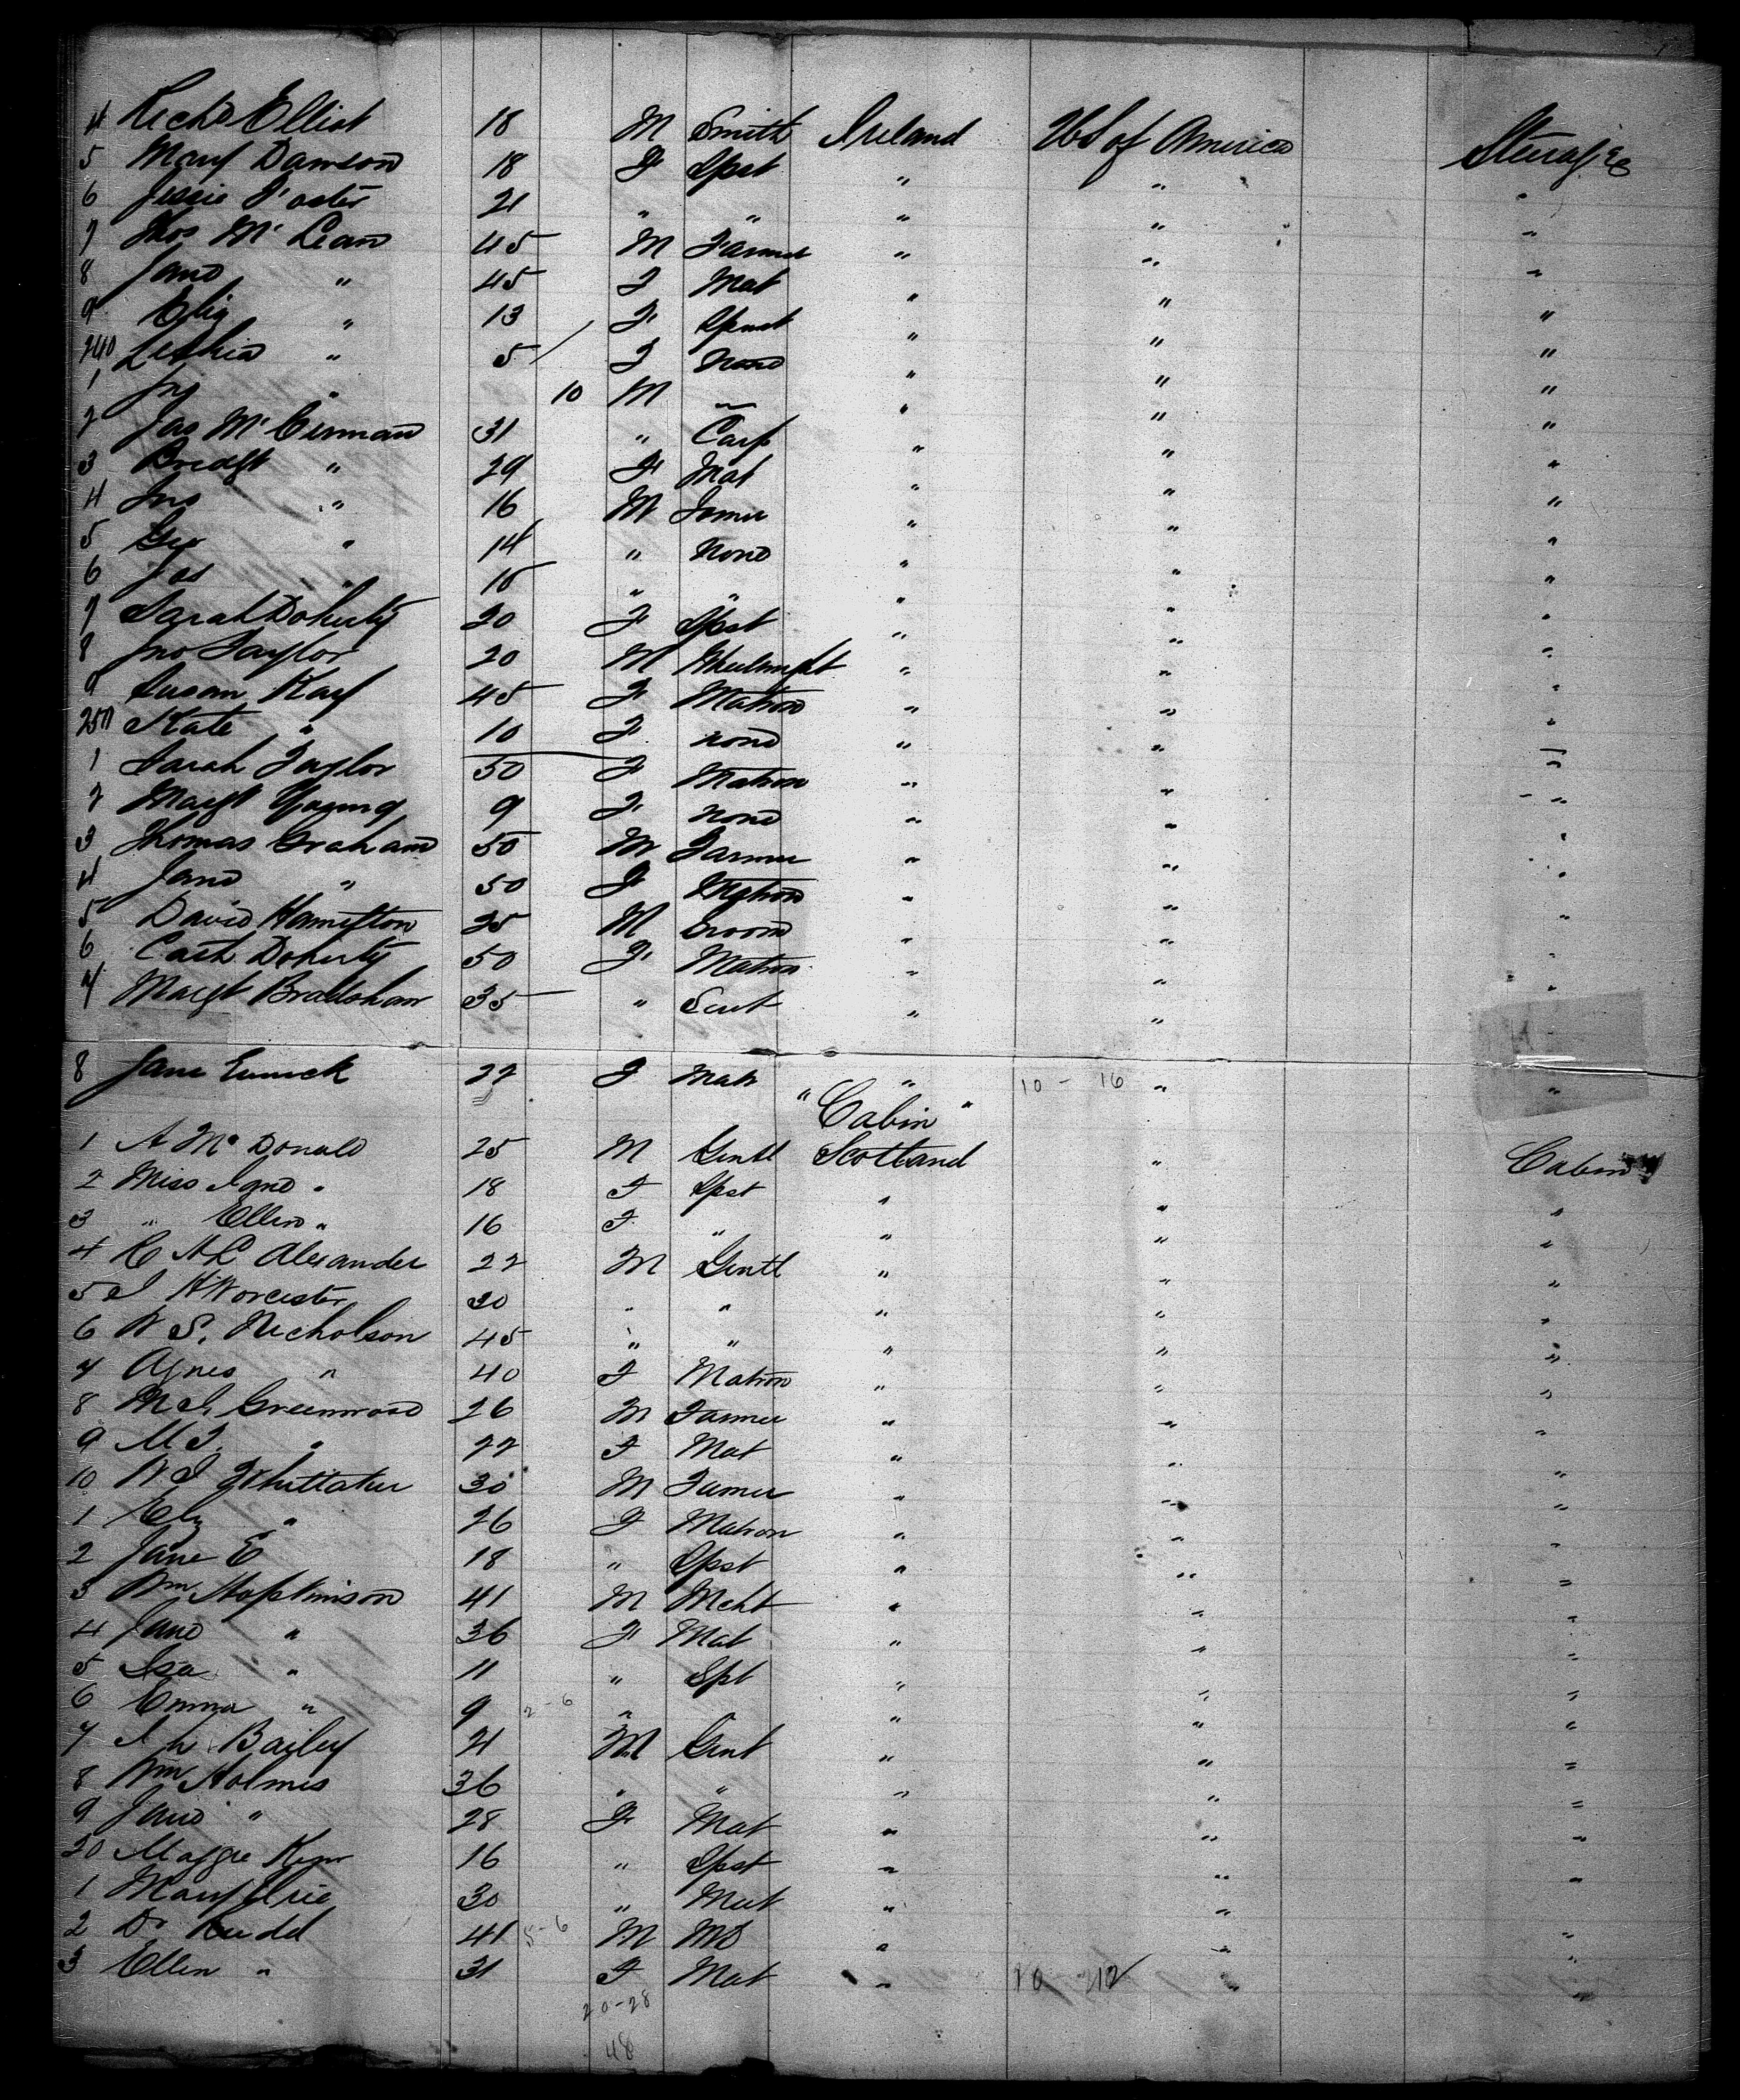 4 Richd Elliot 18 M Smith Ireland US of America Steerage
5 Mary Dawson 18 F Spst " " "
6 Jessie Foster 21 " " " " "
7 Thos McLean 45 M Farmer " " "
8 Jane " 45 F Mat " " "
9 Eliz " 13 F Spinst " " "
240 " 5 F None " " "
1 Jno " 10 M " " "
2 Jas 31 " Carp " " "
3 Bridgt " 29 F Mat " " "
4 Jno " 16 M Farmer " " "
5 Geo " 14 " None " " "
6 Jas " " " " " "
7 Sarah Doherty 20 F Spst " " "
8 Jno Taylor 20 M Wheelwright " " "
9 Susan Kay 45 F Matron " " "
250 Kate " 10 F none " " "
1 Sarah Taylor 50 F Matron " " "
2 Margt Young 9 F none " " "
3 Thomas Graham 50 M Farmer " " "
4 Jane " 50 F Matron " " "
5 David Hamilton 25 M Groom " " "
6 Cath Doherty 50 F Matron " " "
7 Margt Bradshaw 35 " Servt " " "
8 Jane 22 F Matr " 10 - 16 " "
"Cabin"
1 A McDonald 25 M Gentl Scotland " Cabin
2 Miss Jane " 18 F Spst " " "
3 " Ellen " 16 F " " " "
4 C H C Alexander 22 M Gentl " " "
5 J H Worcester 30 " " " " "
6 W S. Nicholson 45 " " " " "
7 Agnes " 40 F Matron " " "
8 M J. Greenwood 26 M Farmer " " "
9 M J. " 22 F Mat " " "
10 W J Whittaker 30 M Farmer " " "
1 Eliz " 26 F Matron " " "
2 Jane E 18 " Spst " " "
3 Wm Hopkinson 41 M Mcht " " "
4 Jane " 36 F Mat " " "
5 Isa " 11 " Spt " " "
6 Emma " 9 2-6 " " " "
7 J h Bailey 21 M Gent " " "
8 Wm Holmes 36 " " " " "
9 Jane " 28 F Mat " " "
20 Maggie Kerr 16 " Spst " " "
1 Mary 30 " Mat " " "
2 Dr Rudd 41 5-6 M MD " " "
3 Ellen " 31 F Mat " 10 212 " "
20-28
48